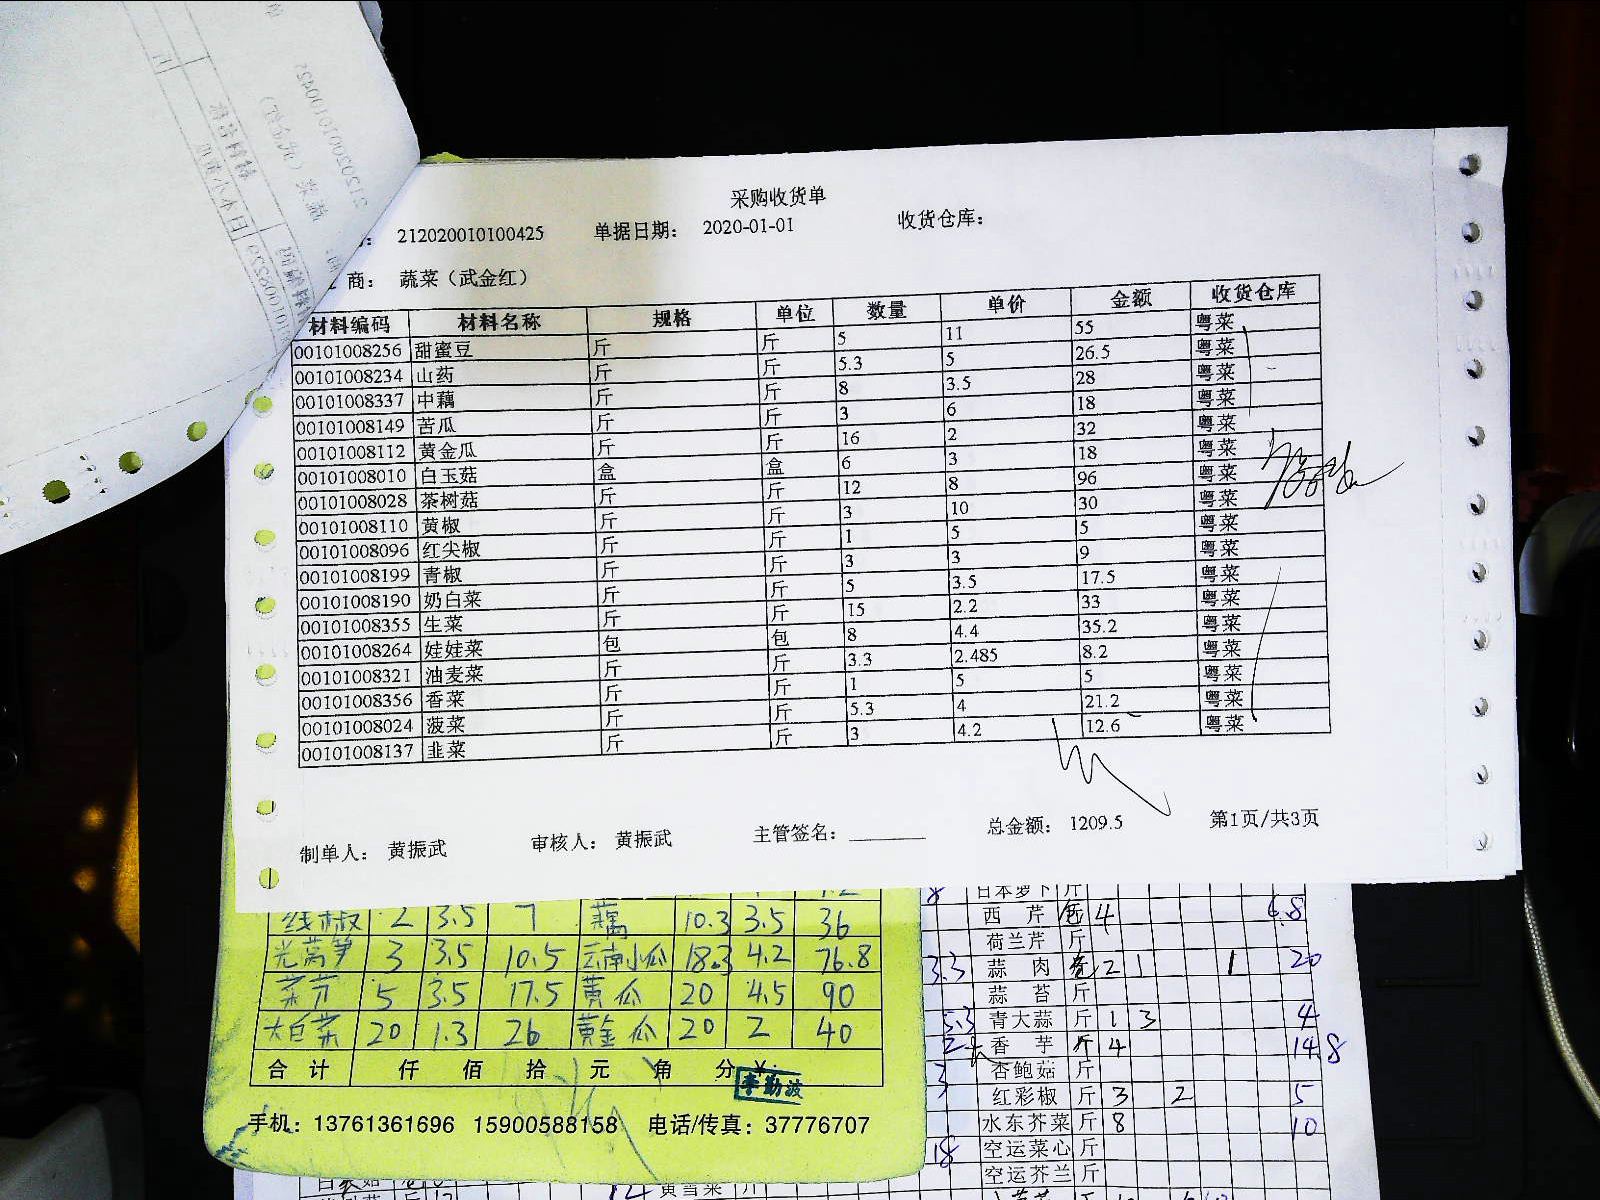 采购收货单
212020010100425 单据日期: 2020-01-01 收货仓库:
商: 蔬菜（武金红）
材料编码 材料名称 规格 单位 数量 单价 金额 收货仓库
00101008256 甜蜜豆 斤 斤 5 11 55 粤菜
00101008234 山药 斤 斤 5.3 5 26.5 粤菜
00101008337 中藕 斤 斤 8 3.5 28 粤菜
00101008149 苦瓜 斤 斤 3 6 18 粤菜
00101008112 黄金瓜 斤 斤 16 2 32 粤菜
00101008010 白玉菇 盒 盒 6 3 18 粤菜
00101008028 茶树菇 斤 斤 12 8 96 粤菜
00101008110 黄椒 斤 斤 3 10 30 粤菜
00101008096 红尖椒 斤 斤 1 5 5 粤菜
00101008199 青椒 斤 斤 3 3 9 粤菜
00101008190 奶白菜 斤 斤 5 3.5 17.5 粤菜
00101008355 生菜 斤 斤 15 2.2 33 粤菜
00101008264 娃娃菜 包 包 8 4.4 35.2 粤菜
00101008321 油麦菜 斤 斤 3.3 2.485 8.2 粤菜
00101008356 香菜 斤 斤 1 5 5 粤菜
00101008024 菠菜 斤 斤 5.3 4 21.2 粤菜
00101008137 韭菜 斤 斤 3 4.2 12.6 粤菜
制单人: 黄振武 审核人: 黄振武 主管签名: 总金额: 1209.5 第1页/共3页
线椒 2 3.5 7 藕 10.3 3.5 36
光莴笋 3 3.5 10.5 云南小瓜 18.3 4.2 76.8
菜艿 5 3.5 17.5 黄瓜 20 4.5 90
大白菜 20 1.3 26 黄金瓜 20 2 40
合计 仟 佰 拾 元 角 分 ¥:
李勤波
手机: 13761361696 15900588158 电话/传真: 37776707
日本萝卜 斤
西芹 4 6.8
荷兰芹 斤
3.3 蒜肉 2 1 1 20
蒜苔 斤
5.3 青大蒜 斤 1 3 4
香芋 斤 4 14.8
3 杏鲍菇 斤
红彩椒 斤 3 2 5
水东芥菜 斤 8 10
18 空运菜心 斤
空运芥兰 斤
黄雪菜 斤